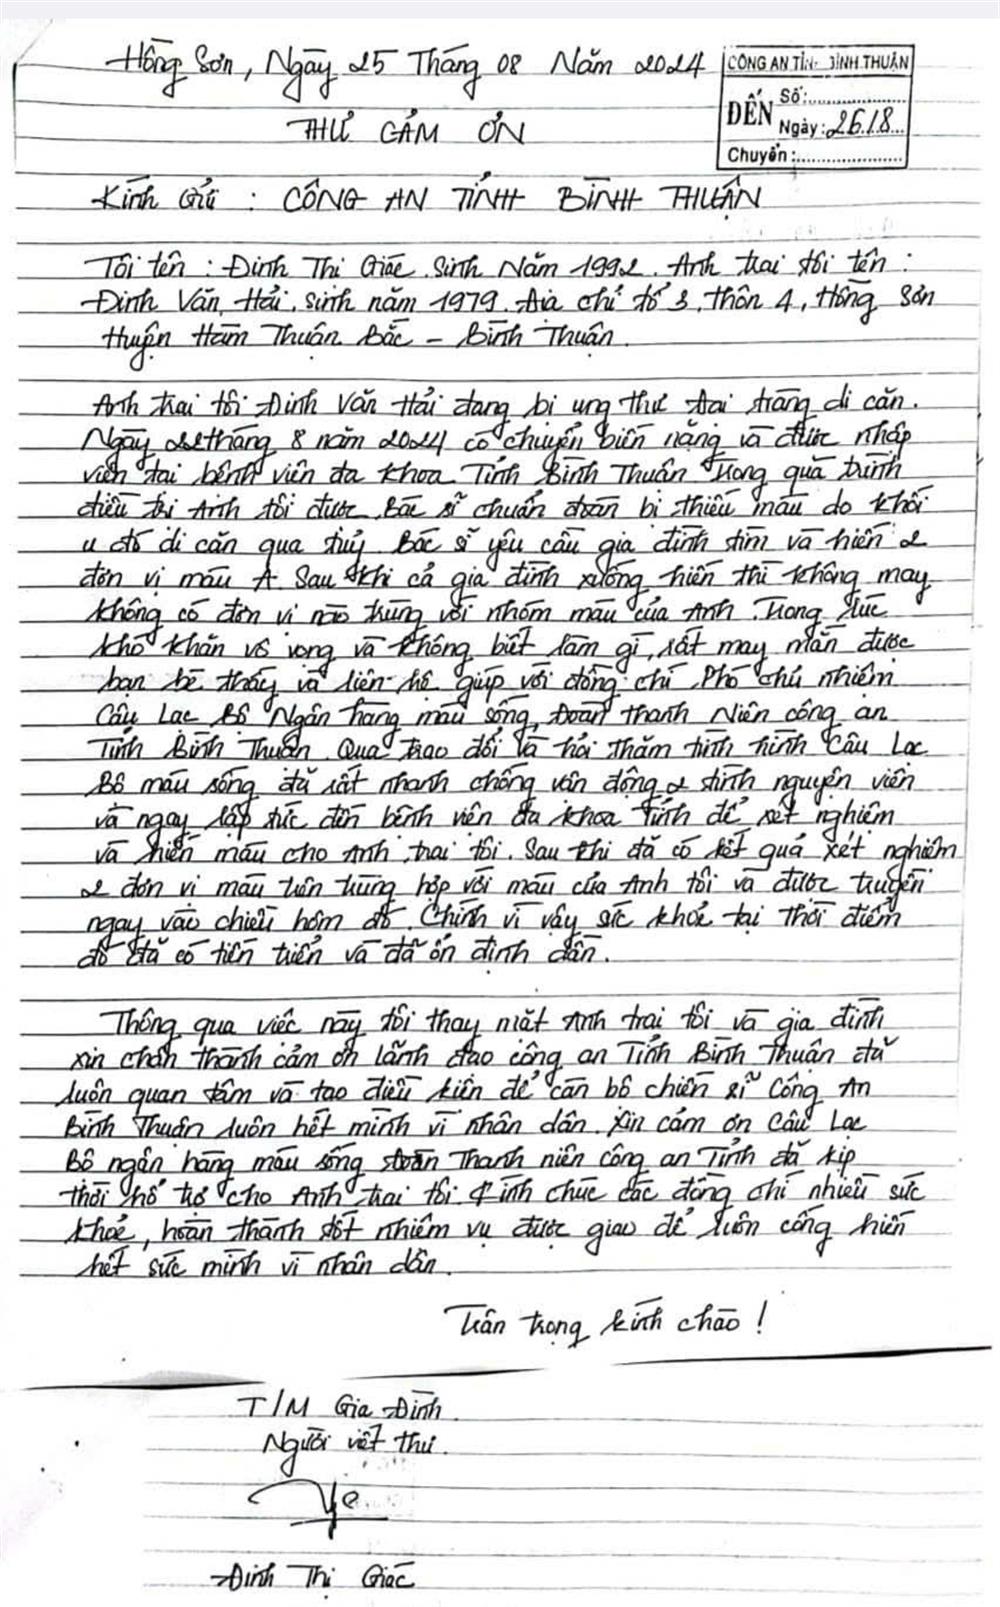 Hồng Sơn, Ngày 25 Tháng 08 Năm 2024
CÔNG AN TỈNH BÌNH THUẬN
ĐẾN
Số:
Ngày: 26/8
Chuyển:
THƯ CẢM ƠN
Kính Gửi : CÔNG AN TỈNH BÌNH THUẬN
Tôi tên : Đinh Thị Giác. Sinh Năm 1992. Anh trai tôi tên :
Đinh Văn Hải, sinh năm 1979. Địa chỉ tổ 3, thôn 4, Hồng Sơn
Huyện Hàm Thuận Bắc - Bình Thuận.
Anh trai tôi Đinh Văn Hải đang bị ung thư đại tràng di căn.
Ngày 22 tháng 8 năm 2024 có chuyển biến nặng và được nhập
viện tại bệnh viện đa khoa Tỉnh Bình Thuận. Trong quá trình
điều trị Anh tôi được Bác sĩ chuẩn đoán bị thiếu máu do khối
u đó di căn qua tuỷ. Bác sĩ yêu cầu gia đình tìm và hiến 2
đơn vị máu A. Sau khi cả gia đình xuống hiến thì không may
không có đơn vị nào trùng với nhóm máu của Anh. Trong lúc
khó khăn vô vọng và không biết làm gì, rất may mắn được
bạn bè thấy và liên hệ giúp với đồng chí Phó chủ nhiệm
Câu Lạc Bộ Ngân hàng máu sống Đoàn thanh Niên công an
Tỉnh Bình Thuận. Qua trao đổi và hỏi thăm tình hình Câu Lạc
Bộ máu sống đã rất nhanh chóng vận động 2 tình nguyện viên
và ngay lập tức đến bệnh viện đa khoa Tỉnh để xét nghiệm
và hiến máu cho Anh trai tôi. Sau khi đã có kết quả xét nghiệm
2 đơn vị máu trên trùng hợp với máu của Anh tôi và được truyền
ngay vào chiều hôm đó. Chính vì vậy sức khoẻ tại thời điểm
đó đã có tiến triển và đã ổn định dần.
Thông qua việc này tôi thay mặt Anh trai tôi và gia đình
xin chân thành cảm ơn lãnh đạo công an Tỉnh Bình Thuận đã
luôn quan tâm và tạo điều kiện để cán bộ chiến sĩ Công An
Bình Thuận luôn hết mình vì nhân dân. Xin cảm ơn Câu Lạc
Bộ ngân hàng máu sống Đoàn Thanh niên công an Tỉnh đã kịp
thời hổ trợ cho Anh trai tôi. Kính chúc các đồng chí nhiều sức
khoẻ, hoàn thành tốt nhiệm vụ được giao để luôn cống hiến
hết sức mình vì nhân dân.
Trân trọng kính chào !
T/M Gia Đình
Người viết thư.
Đinh Thị Giác